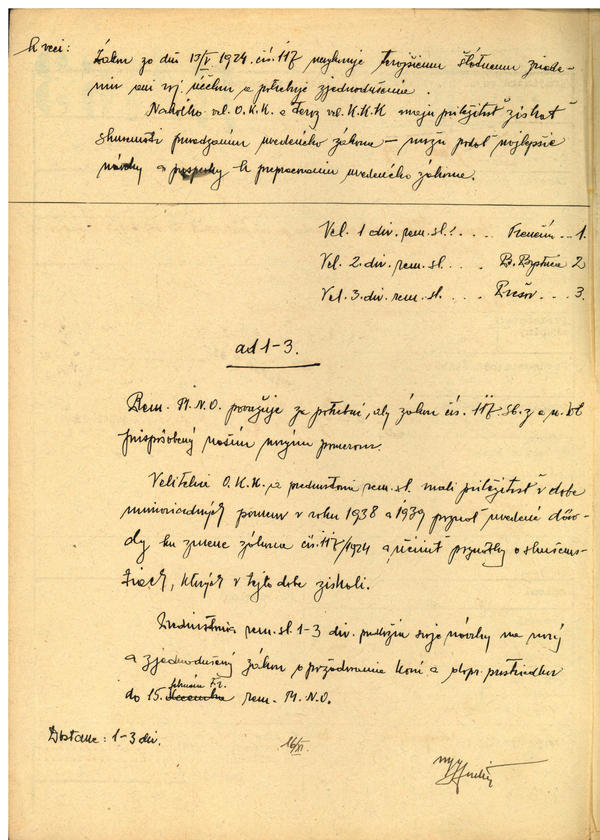 K veci:
Zákon zo dňa 13/V. 1924. čís. 117 nevyhovuje terajšiemu štátnemu zriade-
niu ani voj. účelom a potrebuje zjednodušenie.
Nakoľko vel. O.K.K. a teraz vel. K.K.K majú príležitosť získať
skúsenosti prevádzaním uvedeného zákona – možu podať najlepšie
návrhy a k prepracovaniu uvedeného zákona.
Vel. 1 div. rem. sl. . . . . Trenčín . . . 1.
Vel. 2. div. rem. sl. . . . B. Bystrica 2
Vel. 3. div. rem. sl. . . . . Prešov . . . 3.
ad 1-3.
Rem. M.N.O. považuje za potrebné, aby zákon čís. 117. Sb. z. a n. bol
prispôsobený našim novým pomerom.
Velitelia O.K.K. a prednostovia rem. sl. mali príležitosť v dobe
mimoriadnych pomerov v roku 1938 a 1939 poznať uvedené dôvo-
dy ku zmene zákona čís. 117/1924 a učiniť o skúsenos-
tiach, ktorých v tejto dobe získali.
Prednostovia rem. sl. 1-3 div. predložia svoje návrhy na nový
a zjednodušený zákon o koní a dopr. prostriedkov
do 15. rem. M.N.O.
Dostane: 1-3 div.
16/XI.